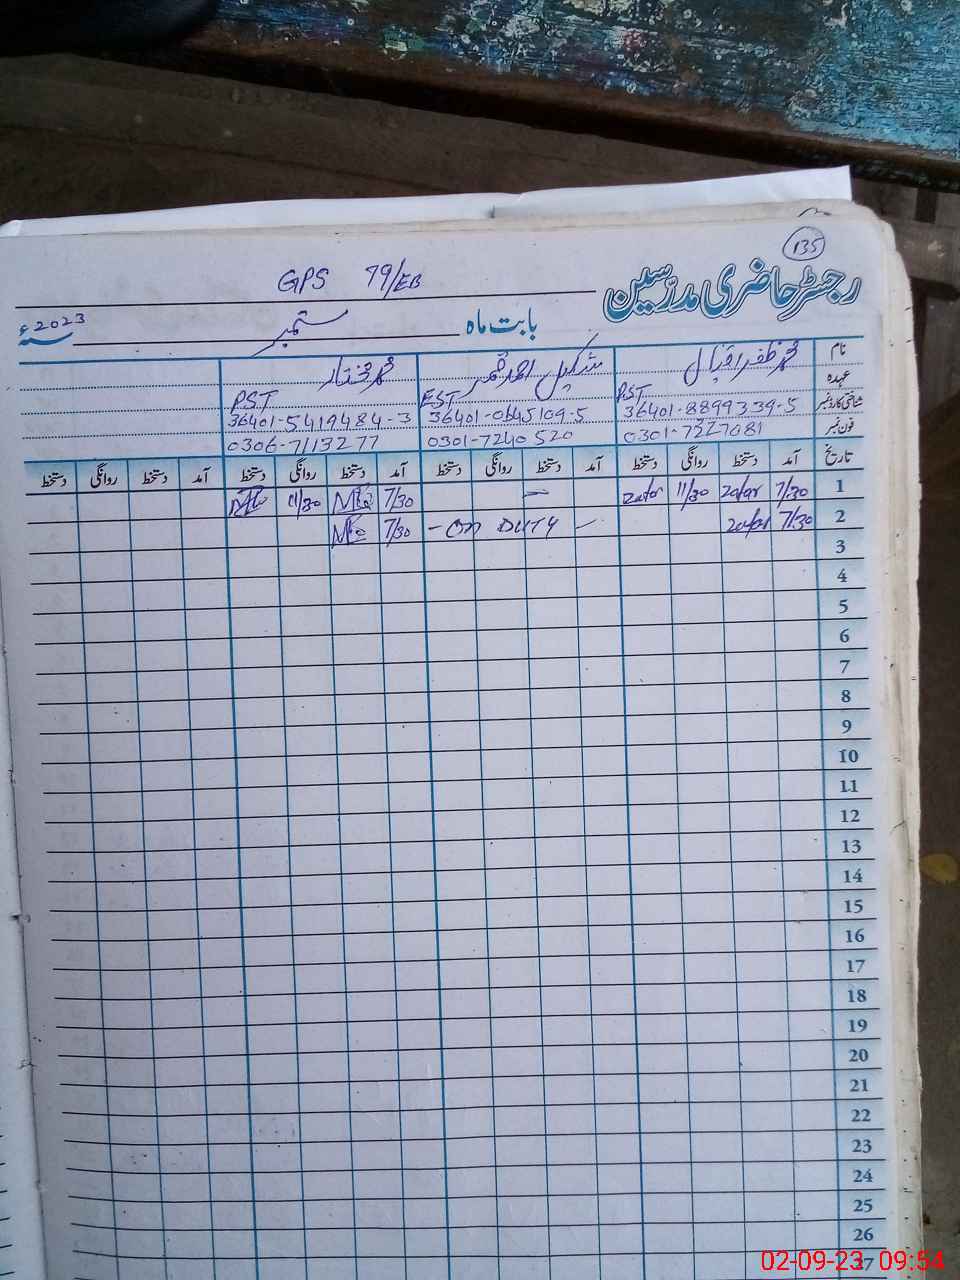 135
GPS 79/EB
رجسٹر حاضری مدرسین
بابت ماہ ستمبر سنہ 2023ء
نام محمد ظفر اقبال شکیل احمد قمر محمد مختار
عہدہ PST EST PST
شناختی کارڈ نمبر 36401-8899339-5 36401-0645109-5 36401-5419484-3
فون نمبر 0301-7227081 0301-7240520 0306-7113277
تاریخ آمد دستخط روانگی دستخط آمد دستخط روانگی دستخط آمد دستخط روانگی دستخط آمد دستخط روانگی دستخط
1 7/30 Zafar 11/30 Zafar - 7/30 11/30
2 7/30 Zafar - ON DUTY - 7/30
3
4
5
6
7
8
9
10
11
12
13
14
15
16
17
18
19
20
21
22
23
24
25
26
27
02-09-23 09:54